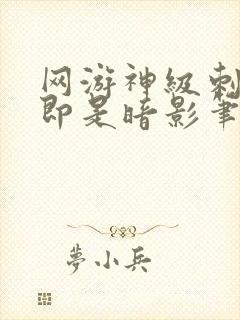 网游神级刺
即是暗影笔
夢小兵